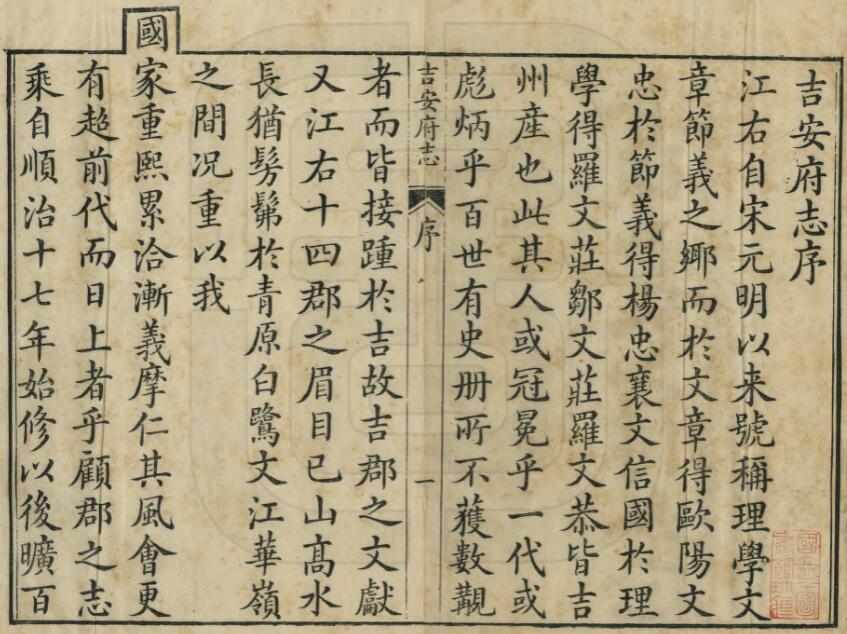 吉安府志序
江右自宋元明以来號稱理學文
章節義之鄉而於文章得歐陽文
忠於節義得楊忠襄文信國於理
學得羅文莊鄒文莊羅文恭皆吉
州產也此其人或冠冕乎一代或
彪炳乎百世有史册所不獲數覯
吉安府志 序 一
者而皆接踵於吉故吉郡之文獻
又江右十四郡之眉目已山高水
長猶髣髴於青原白鷺文江華嶺
之間况重以我
國家重熙累洽漸義摩仁其風會更
有超前代而日上者乎顧郡之志
乘自順治十七年始修以後曠百